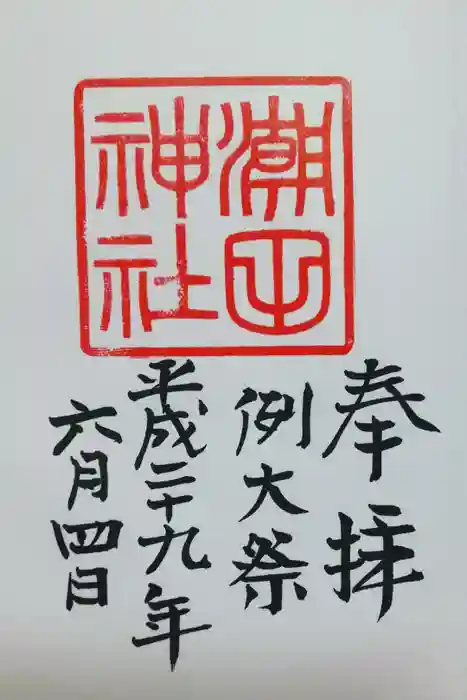 潮田
神社
奉拝
例大祭
平成二十九年
六月四日